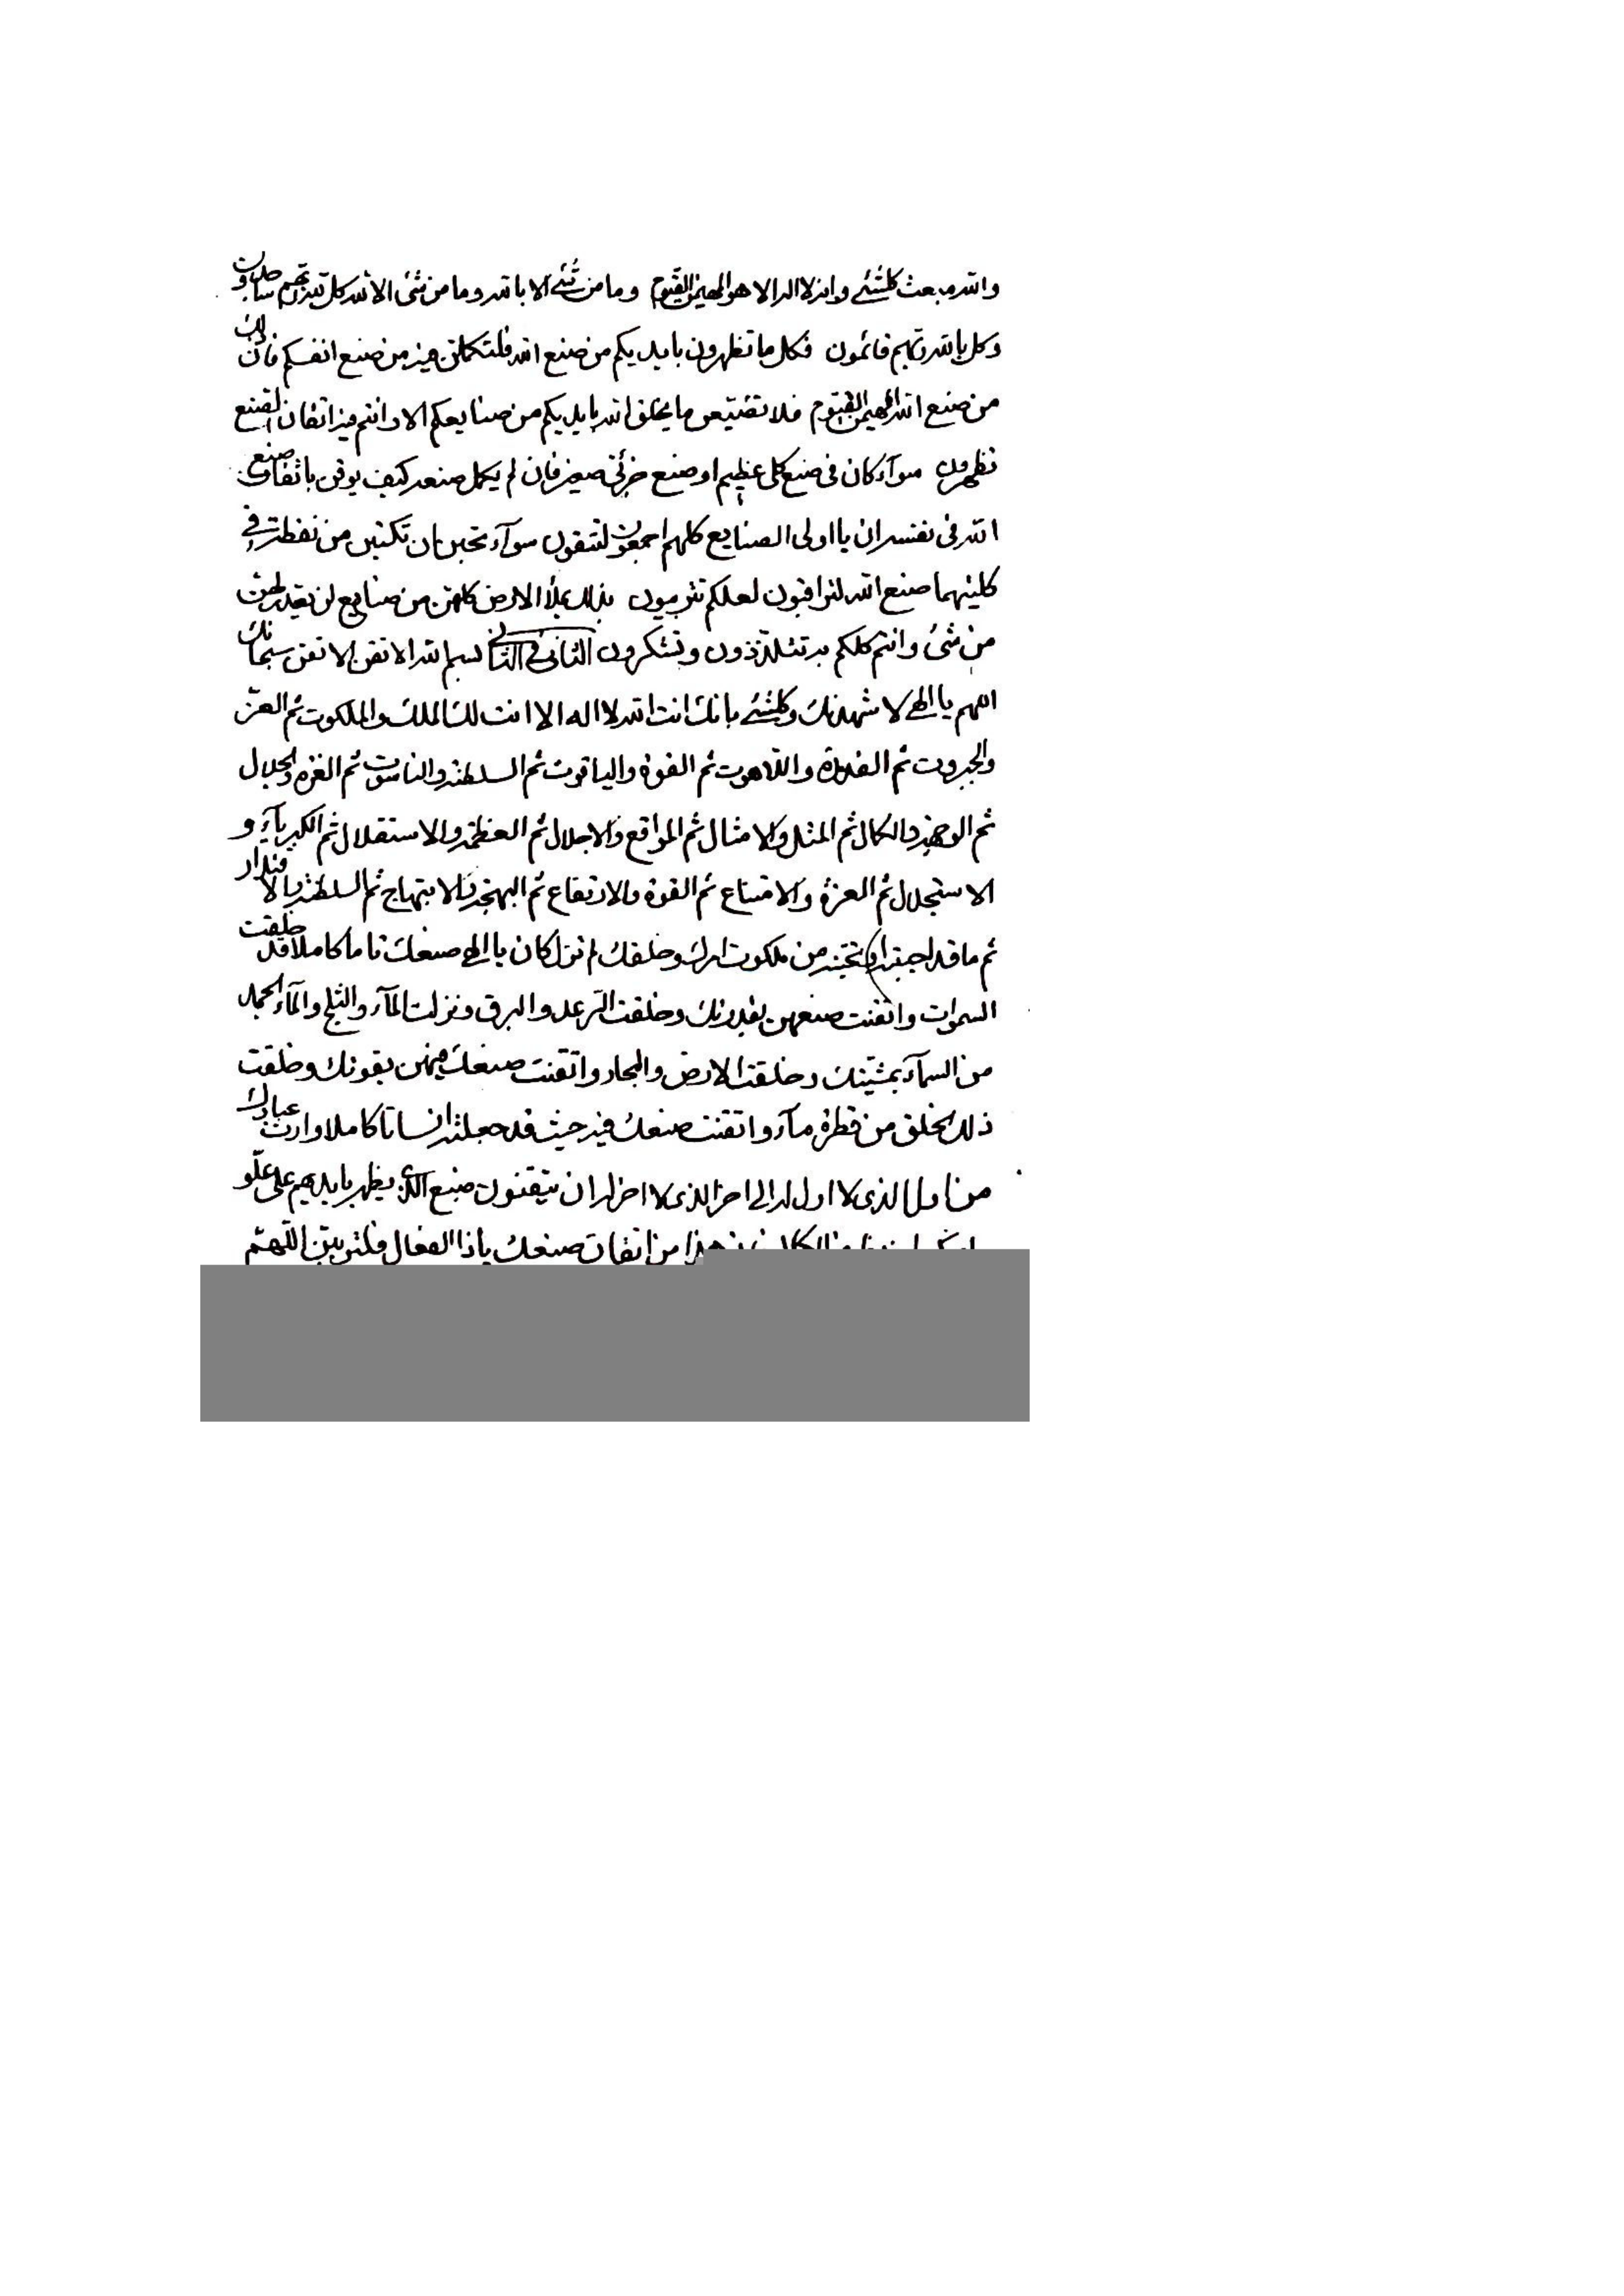 والله مبعث كلشئ وانه لا اله الا هو المهيمن القيوم وما من شئ الا بالله وما من شئ الا لله كل لله ربهم ساجدون
وكل بالله ربهم قائمون فكل ما تظهرون بايديكم من صنع الله فلتكملن فيه من صنع انفسكم فان ذلك
من صنع الله المهيمن القيوم فلا تضيعن ما يخلق الله بايديكم من صنايعكم الا وانتم فيه اتقان الصنع
تظهرون سوآء كان في صنع كلي عظيم او صنع جزئي صغير فان لم يكمل صنعه كيف يوقن باتقان صنع
الله في نفسه ان يا اولى الصنايع كلهم اجمعون لتتقون سوآء تحبن ان تكتبن من نقطة في
كليتهما صنع الله لتراقبون لعلكم تتربيون بذلك يملأ الارض كلهن من صنايع لن يقدر لهن
من شئ وانتم كلكم به تتلذذون وتشكرون الثاني في الثاني بسم الله الاتقن الاتقن سبحانك
اللهم يا الهي لاشهدنك وكلشئ بانك انت الله لا اله الا انت لك الملك والملكوت ثم العز
والجبروت ثم القدرة واللاهوت ثم القوة والياقوت ثم السلطنة والناسوت ثم العزة والجلال
ثم الوجهة والكمال ثم المثل والامثال ثم المواقع والاجلال ثم العظمة والاستقلال ثم الكبرياء و
الاستجلال ثم العزة والامتناع ثم القوة والارتفاع ثم البهجة والابتهاج ثم السلطنة والاقتدار
ثم ما قد احببته او تحبنه من ملكوت امرك وخلقك لم تزل كان يا الهي صنعك تاما كاملا قد خلقت
السموات واتقنت صنعهن بقدرتك وخلقت الرعد والبرق ونزلت المآء والثلج والمآء الجمد
من السمآء بمشيتك وخلقت الارض والبحار واتقنت صنعك فيهن بقوتك وخلقت
ذلك الخلق من قطرة مآء واتقنت صنعك فيه حيث قد جعلته انسانا كاملا وارت عبادك
من اول الذي لا اول له الى اخر الذي لا اخر له ان يتقنون صنع الذي يظهر بايديهم على علو
هذا من اتقان صنعك ياذا الفعال فلتربين اللهم